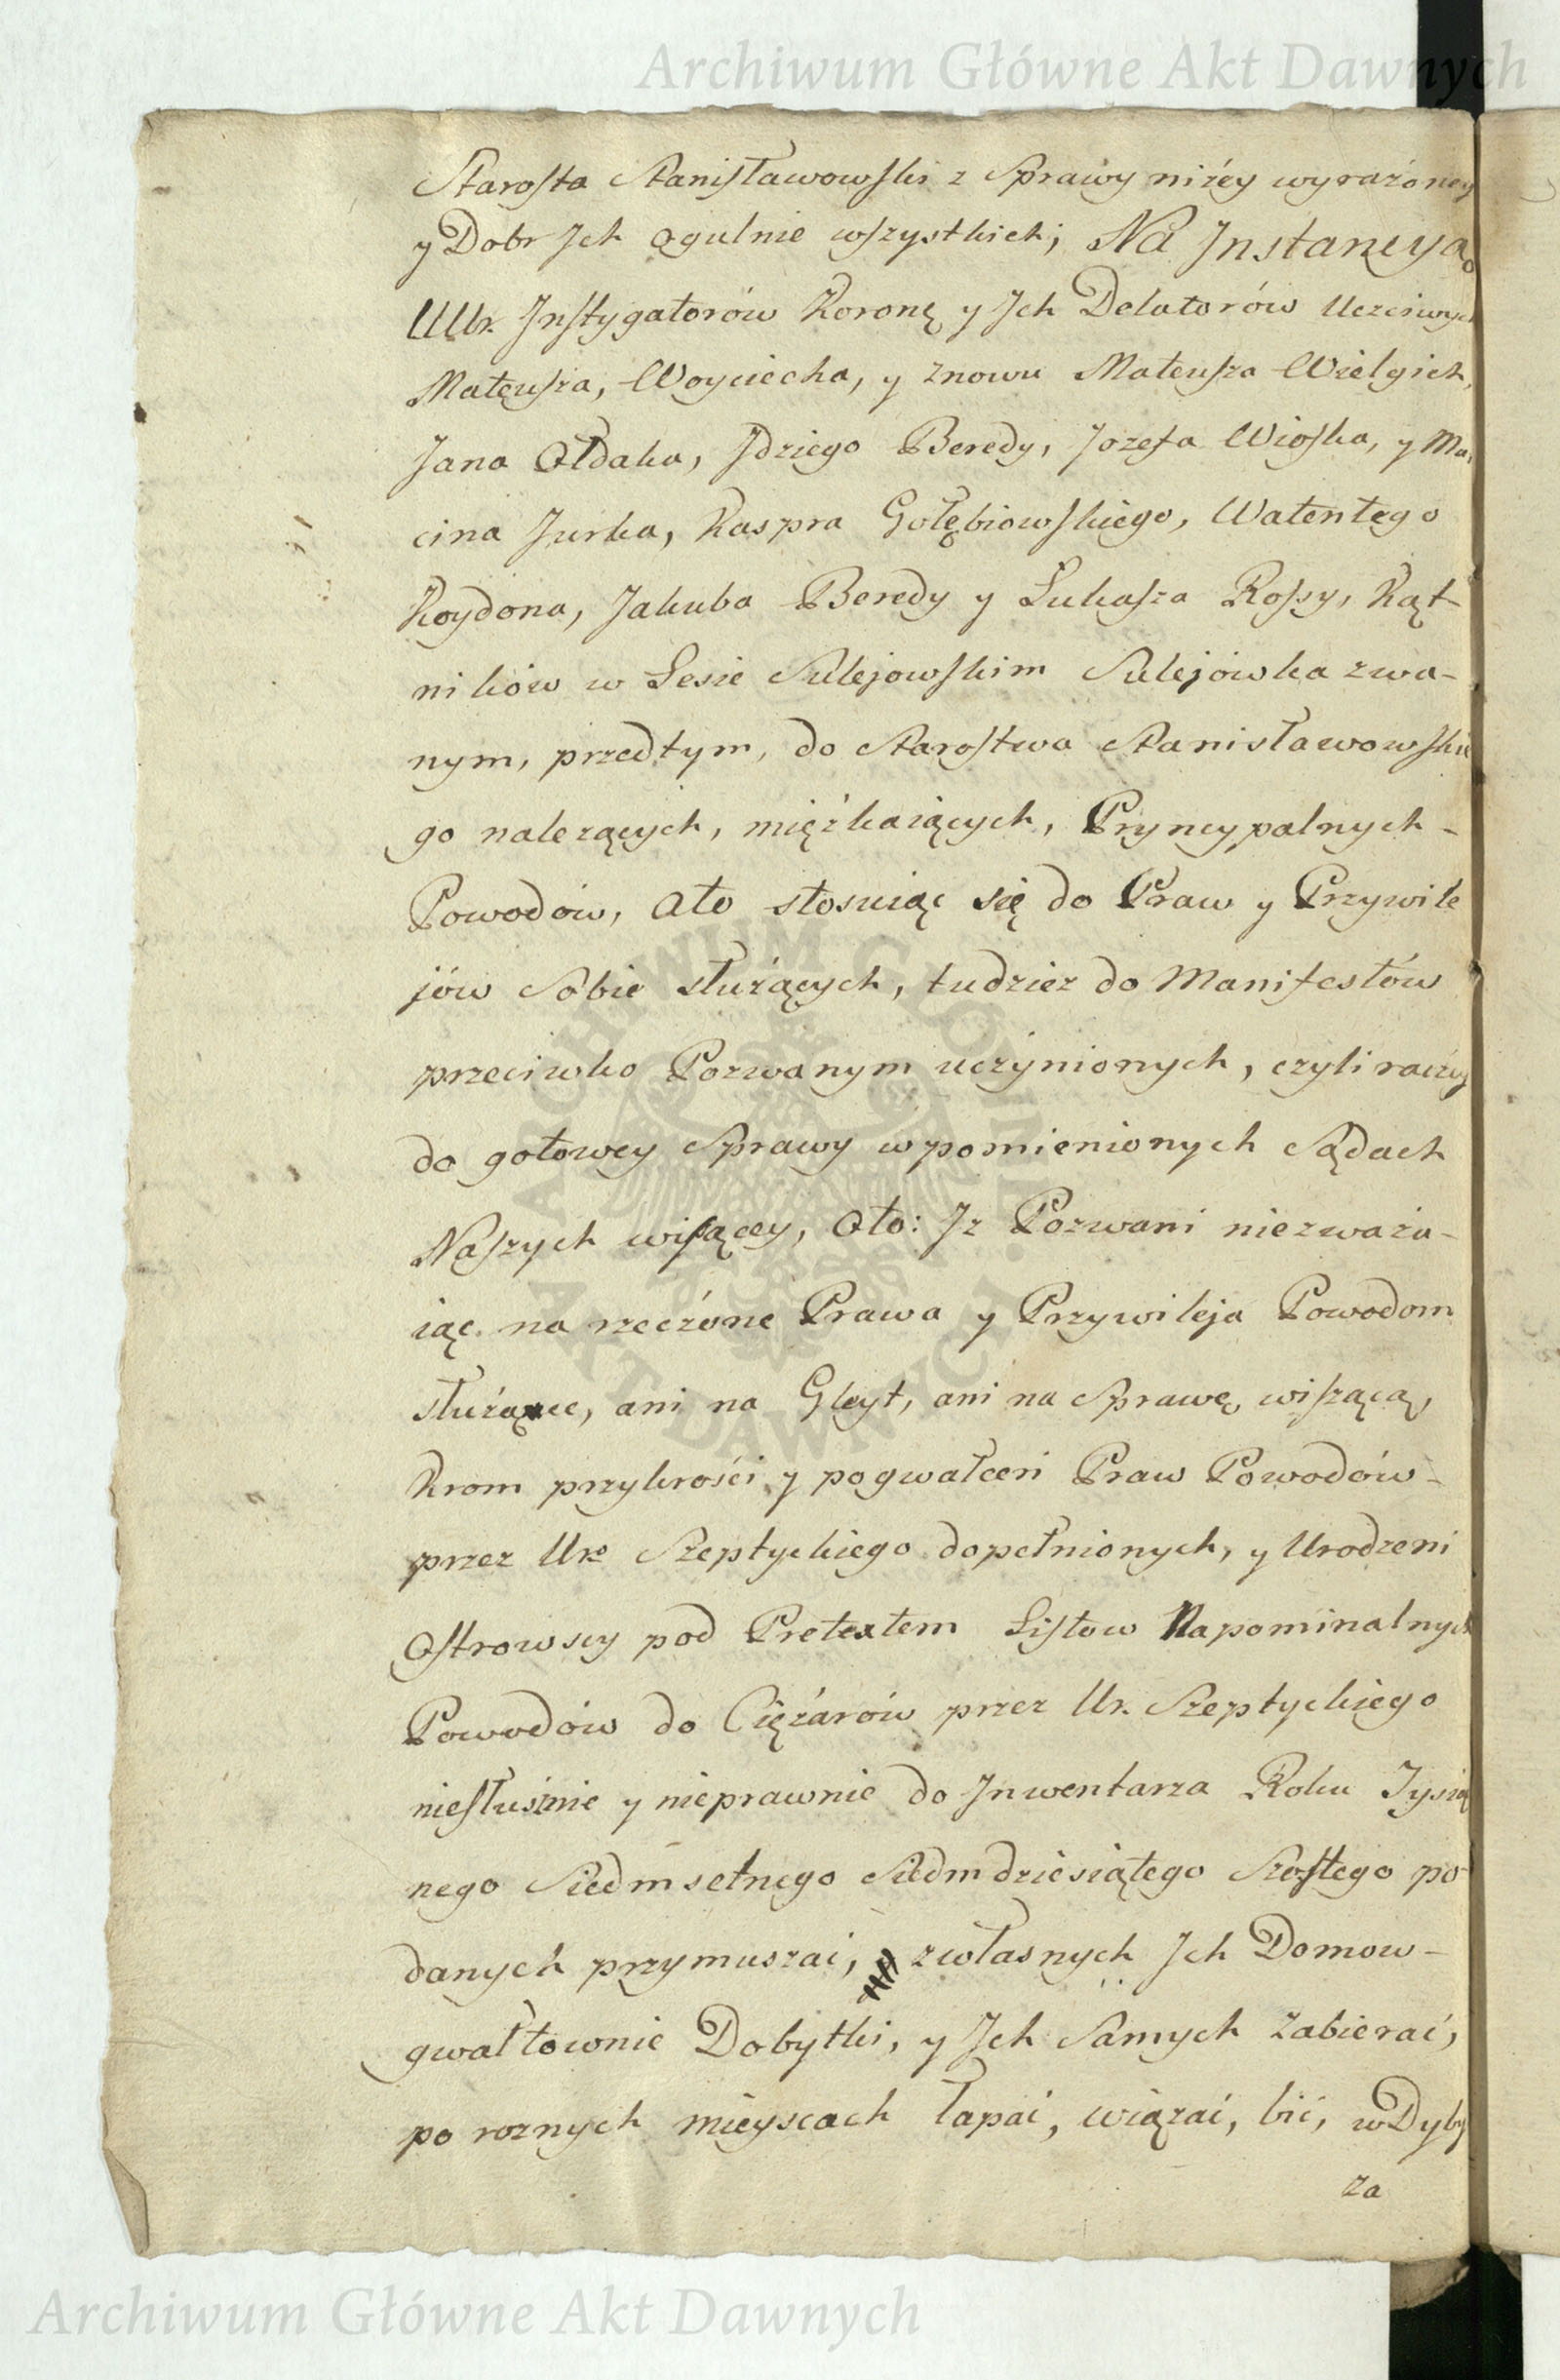 Archiwum Główne Akt Dawnych
Starosta Stanisławowski z Sprawy niżey wyrażoney
y Dobr Jch ogulnie wszystkich; Na Jnstancyą
UUr. Jnstygatorów Koronę y Jch Delatorów Uczciwych
Mateusza, Woyciecha, y znowu Mateusza Wielgich,
Jana Ołdaka, Jdziego Beredy, Jozefa Wioska, y Mar
cina Jurka, Kaspra Gołębiowskiego, Walentego
Koydona, Jakuba Beredy y Łukasza Rossy, Kąt-
ników w Lesie Sulejowskim Sulejówka zwa-
nym, przedtym, do Starostwa Stanisławowskie
go nalezących, mięźkaiących, Pryncypalnych -
Powodów, Ato stosuiąc się do Praw y Przywile
jów Sobie służących, tudzież do Manifestów
przeciwko Pozwanym uczynionych, czyli raczey
do gotowey Sprawy w pomienionych Sądach
Naszych wiszącey, Oto: Jż Pozwani niezważa-
iąc na rzeczone Prawa y Przywileja Powodom
służące, ani na Gleyt, ani na Sprawę wiszącą,
Krom przykrości y pogwałceń Praw Powodów -
przez Uro Szeptyckiego dopełnionych, y Urodzeni
Ostrowscy pod Pretextem Listow Napominalnych
Powodów do Ciężarów przez Ur. Szeptyckiego
niesłusznie y nieprawnie do Jnwentarza Roku Tysią
nego Siedmsetnego Siedmdziesiątego Szostego po
danych przymuszać, z własnych Jch Domow -
gwałtownie Dobytki, y Jch Samych zabierać,
po roznych mieyscach łapać, wiązać, bić, w Dyby
za
ARCHIWUM GŁÓWNE AKT DAWNYCH
Archiwum Główne Akt Dawnych